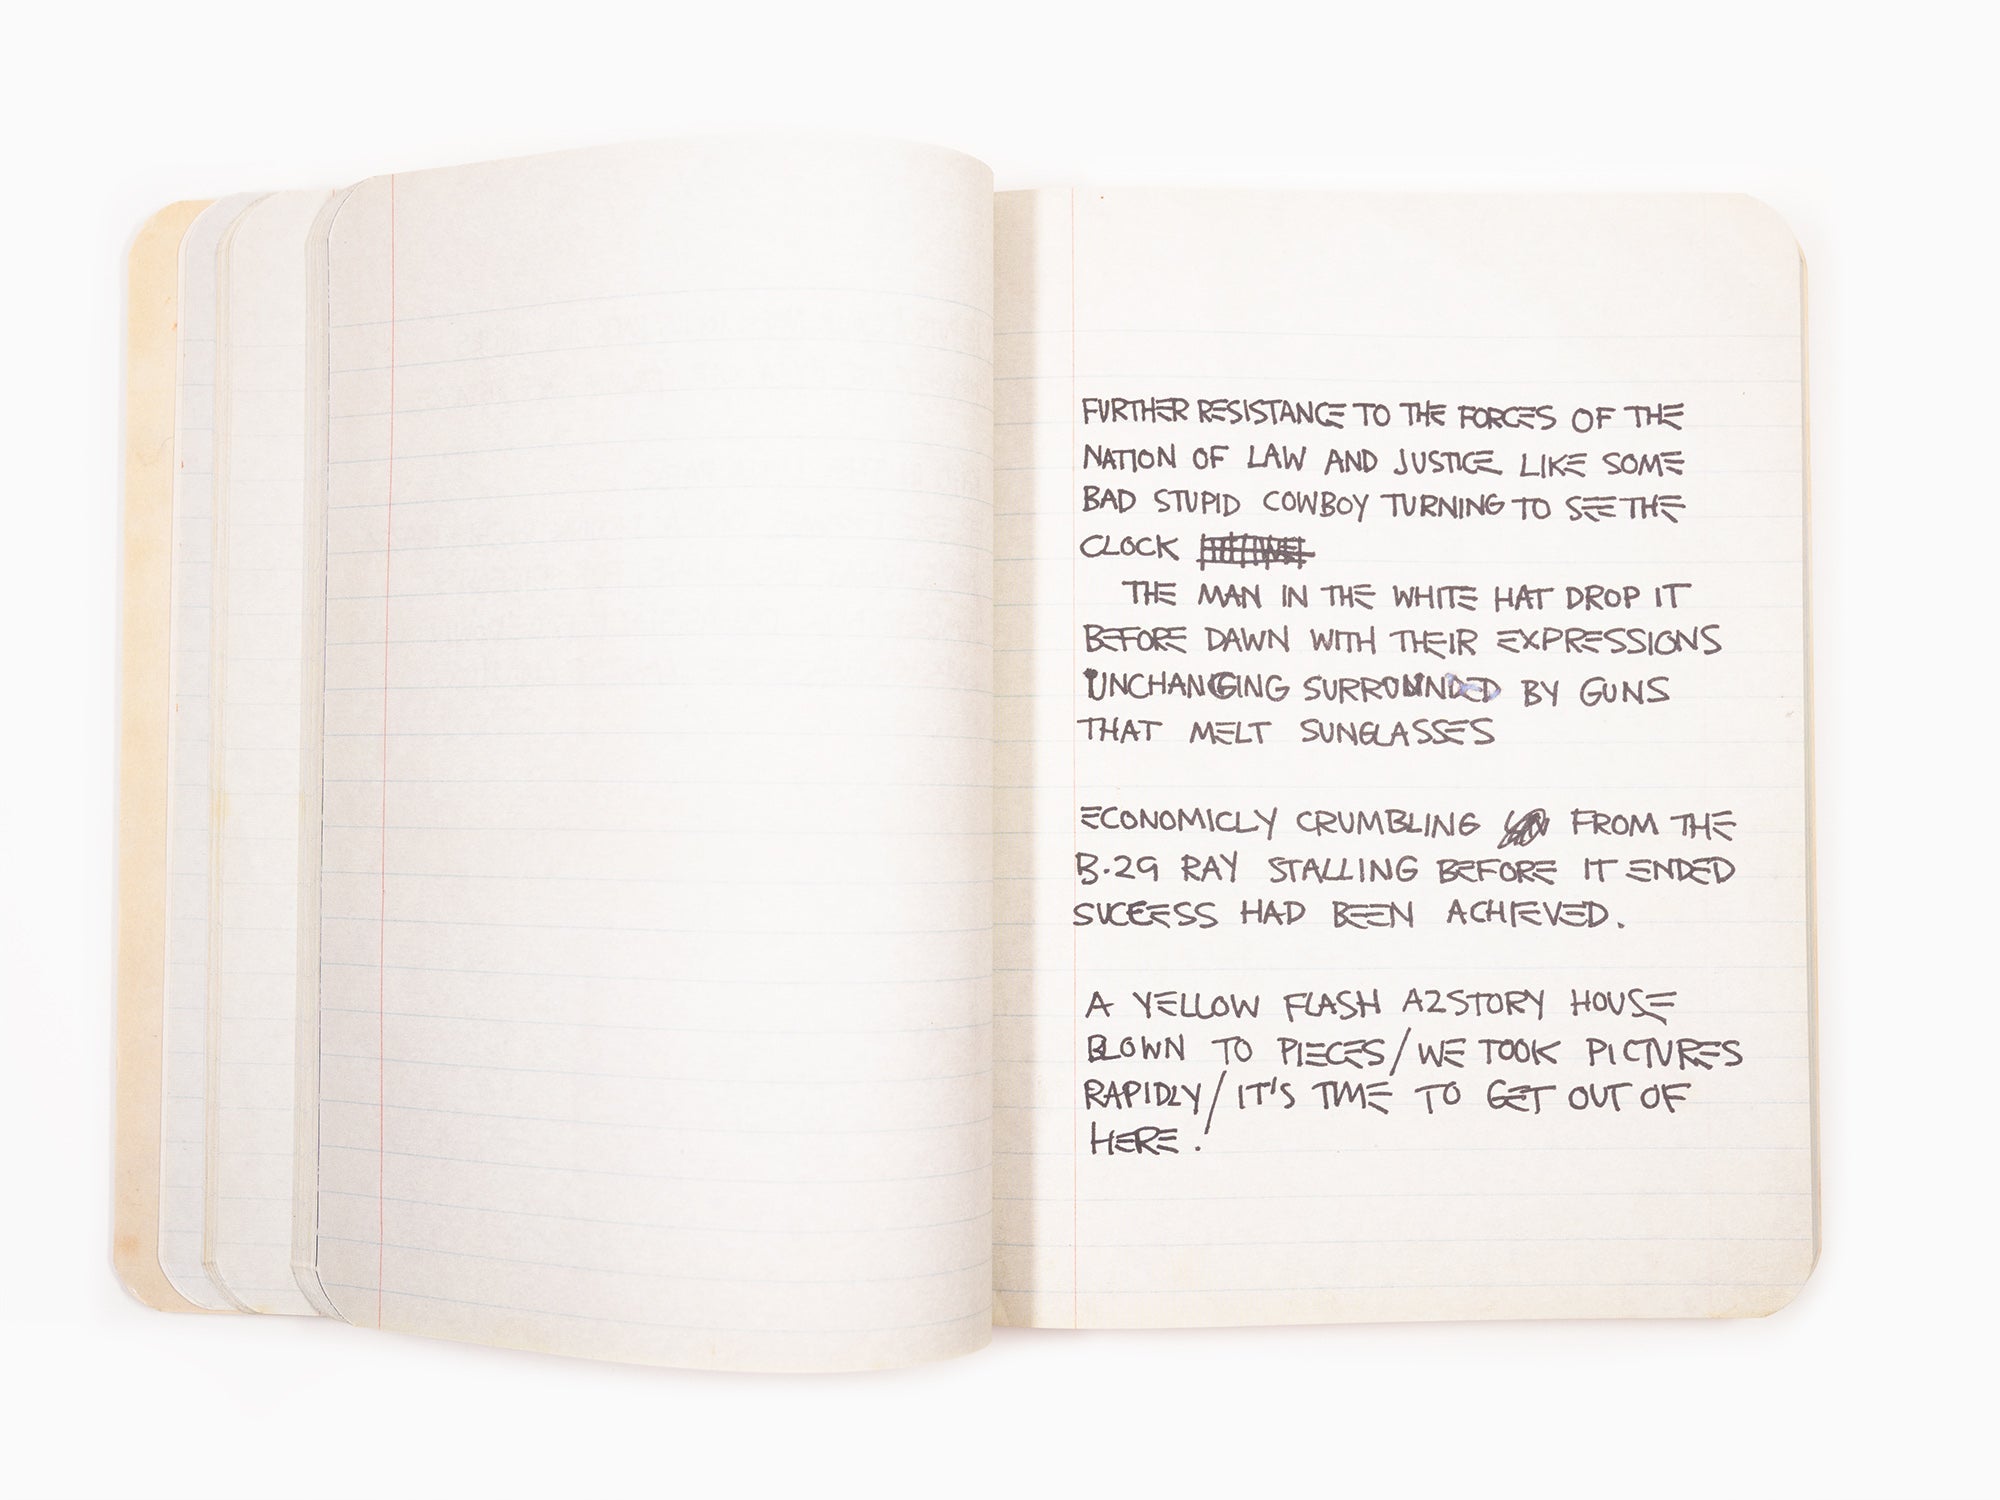 FURTHER RESISTANCE TO THE FORCES OF THE
NATION OF LAW AND JUSTICE LIKE SOME
BAD STUPID COWBOY TURNING TO SEE THE
CLOCK
THE MAN IN THE WHITE HAT DROP IT
BEFORE DAWN WITH THEIR EXPRESSIONS
UNCHANGING SURROUNDED BY GUNS
THAT MELT SUNGLASSES
ECONOMICLY CRUMBLING FROM THE
B.29 RAY STALLING BEFORE IT ENDED
SUCEESS HAD BEEN ACHIEVED.
A YELLOW FLASH A2STORY HOUSE
BLOWN TO PIECES/WE TOOK PICTURES
RAPIDLY/IT'S TIME TO GET OUT OF
HERE.